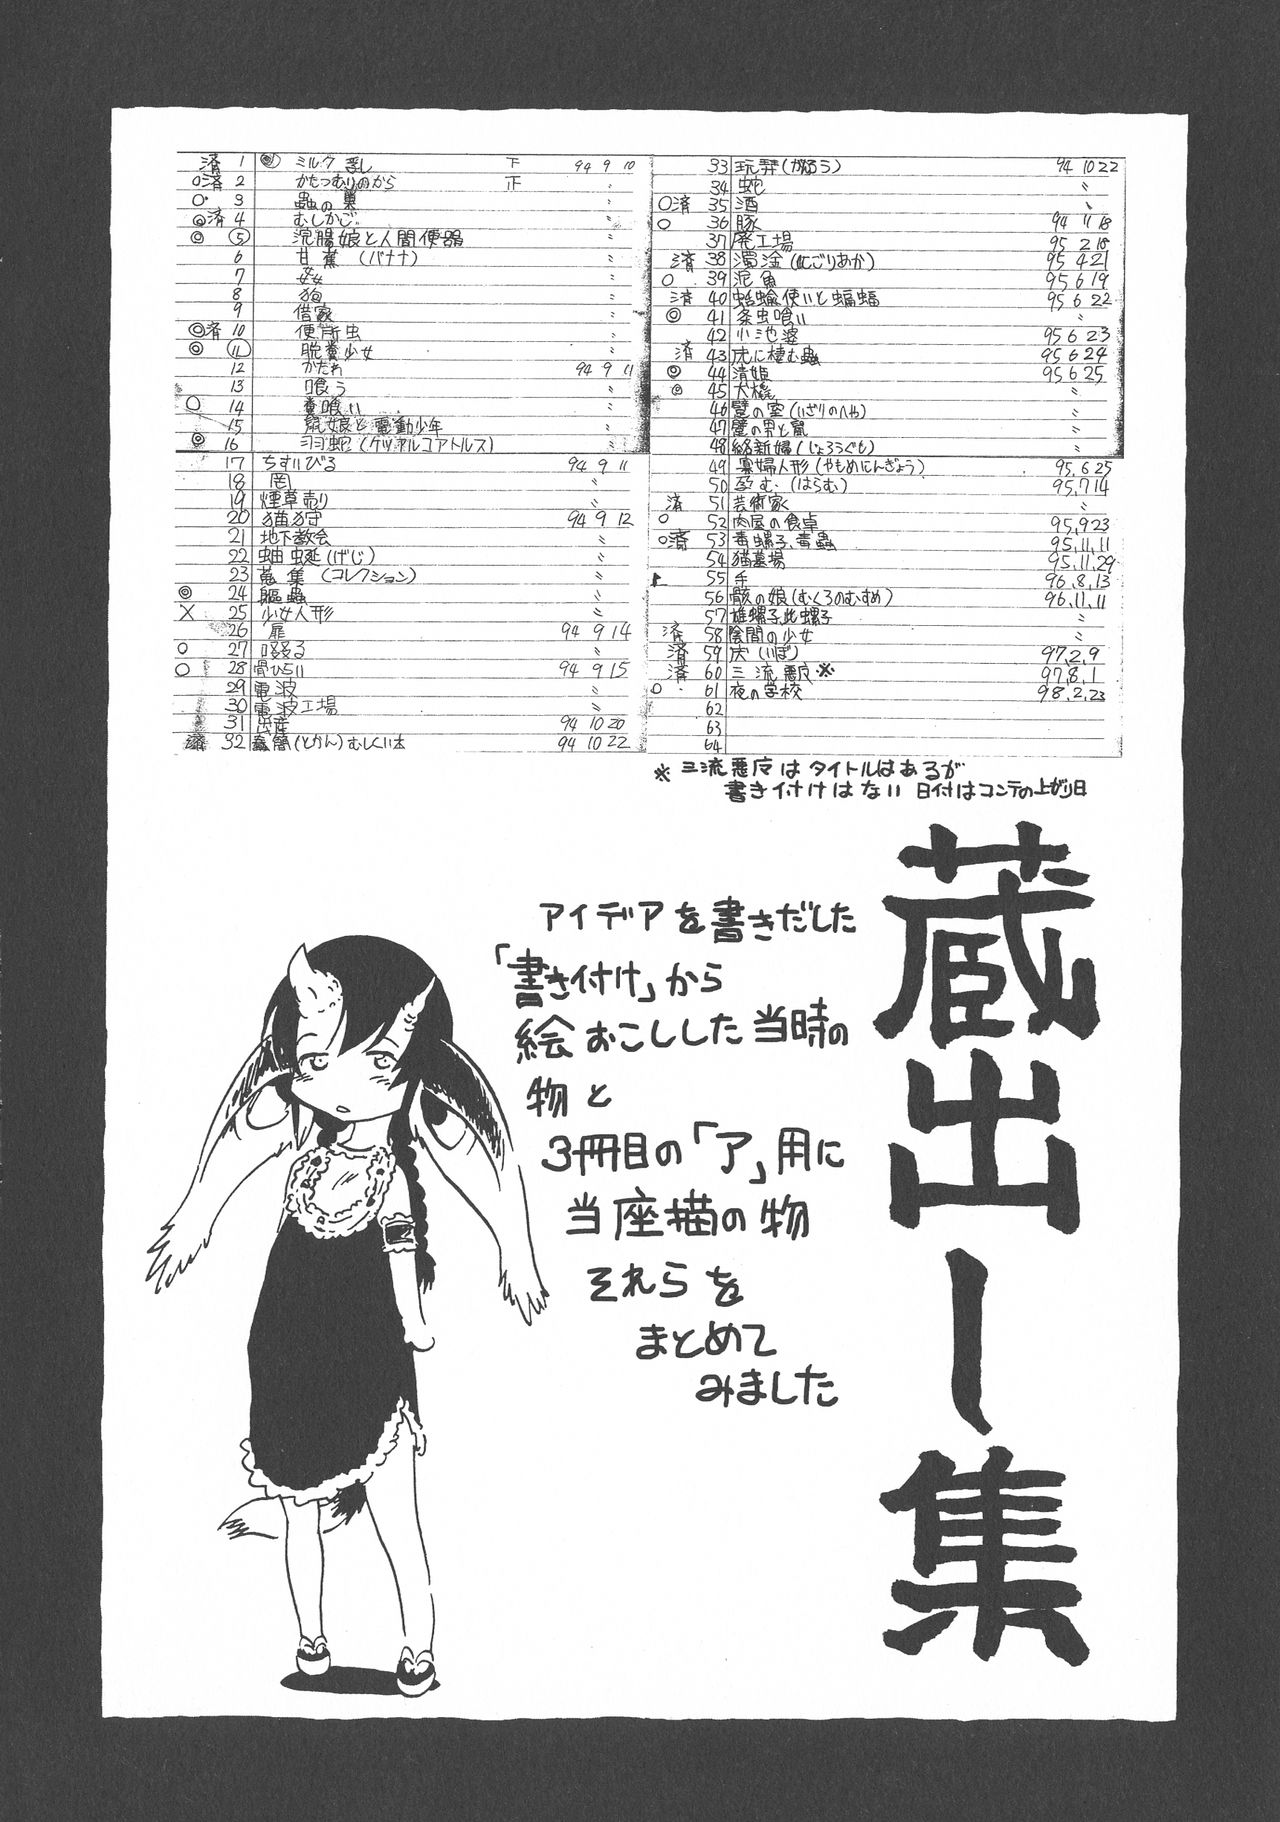 済 1 ◎ ミルク 浮し 下 94 9 10
○済 2 かたつむりのから 正 〃
○ 3 蟲の巣 〃
◎済 4 むしかご 〃
◎ ⑤ 浣腸娘と人間便器 〃
6 甘蕉 (バナナ) 〃
7 〃
8 狗 〃
9 借家 〃
◎済 10 便所虫 〃
◎ ⑪ 脱糞少女 〃
12 かたわ 94 9 11
13 喰う 〃
○ 14 糞喰い 〃
15 鼠娘と電動少年 〃
◎ 16 羽蛇 (ケツァルコアトルス) 〃
17 ちすいびる 94 9 11
18 〃
19 煙草売り 〃
20 猫狩 94 9 12
21 地下教会 〃
22 蚰蜒 (げじ) 〃
23 蒐集 (コレクション) 〃
◎ 24 軀蟲 〃
× 25 少女人形 〃
26 扉 94 9 14
○ 27 啜る 〃
○ 28 骨ひろい 94 9 15
29 電波 〃
30 電波工場 〃
31 出産 94 10 20
済 32 蠹簡 (とかん) むしくい本 94 10 22
33 玩弄 (がんろう) 94 10 22
34 蛇 〃
○済 35 酒 〃
○ 36 豚 94 11 18
37 廃工場 95 2 18
済 38 濁淦 (にごりあか) 95 4 21
○ 39 泥魚 95 6 19
済 40 蛞蝓使いと蝙蝠 95 6 22
◎ 41 条虫喰い 〃
42 小池婆 95 6 23
済 43 虎に棲む蟲 95 6 24
◎ 44 清姫 95 6 25
◎ 45 犬橇 〃
46 躄の室 (いざりのへや) 〃
47 躄の男と鼠 〃
48 絡新婦 (じょろうぐも) 〃
49 寡婦人形 (やもめにんぎょう) 95,6 25
50 孕む (はらむ) 95,7 14
済 51 芸術家 〃
○ 52 肉屋の食卓 95,9 23
○済 53 毒螺子、毒蟲 95,11,11
54 猫墓場 95,11,29
55 手 96,8,13
56 骸の娘 (むくろのむすめ) 96,11,11
57 雄螺子、雌螺子 〃
済 58 陰間の少女 〃
済 59 疣 (いぼ) 97,2,9
済 60 三流悪皮※ 97,8,1
○ 61 夜の学校 98,2,23
62
63
64
※ 三流悪皮はタイトルはあるが
書き付けはない 日付はコンテの上がり日
蔵出し集
アイデアを書きだした
「書き付け」から
絵おこしした当時の
物と
3冊目の「ア」用に
当座描の物
それらを
まとめて
みました